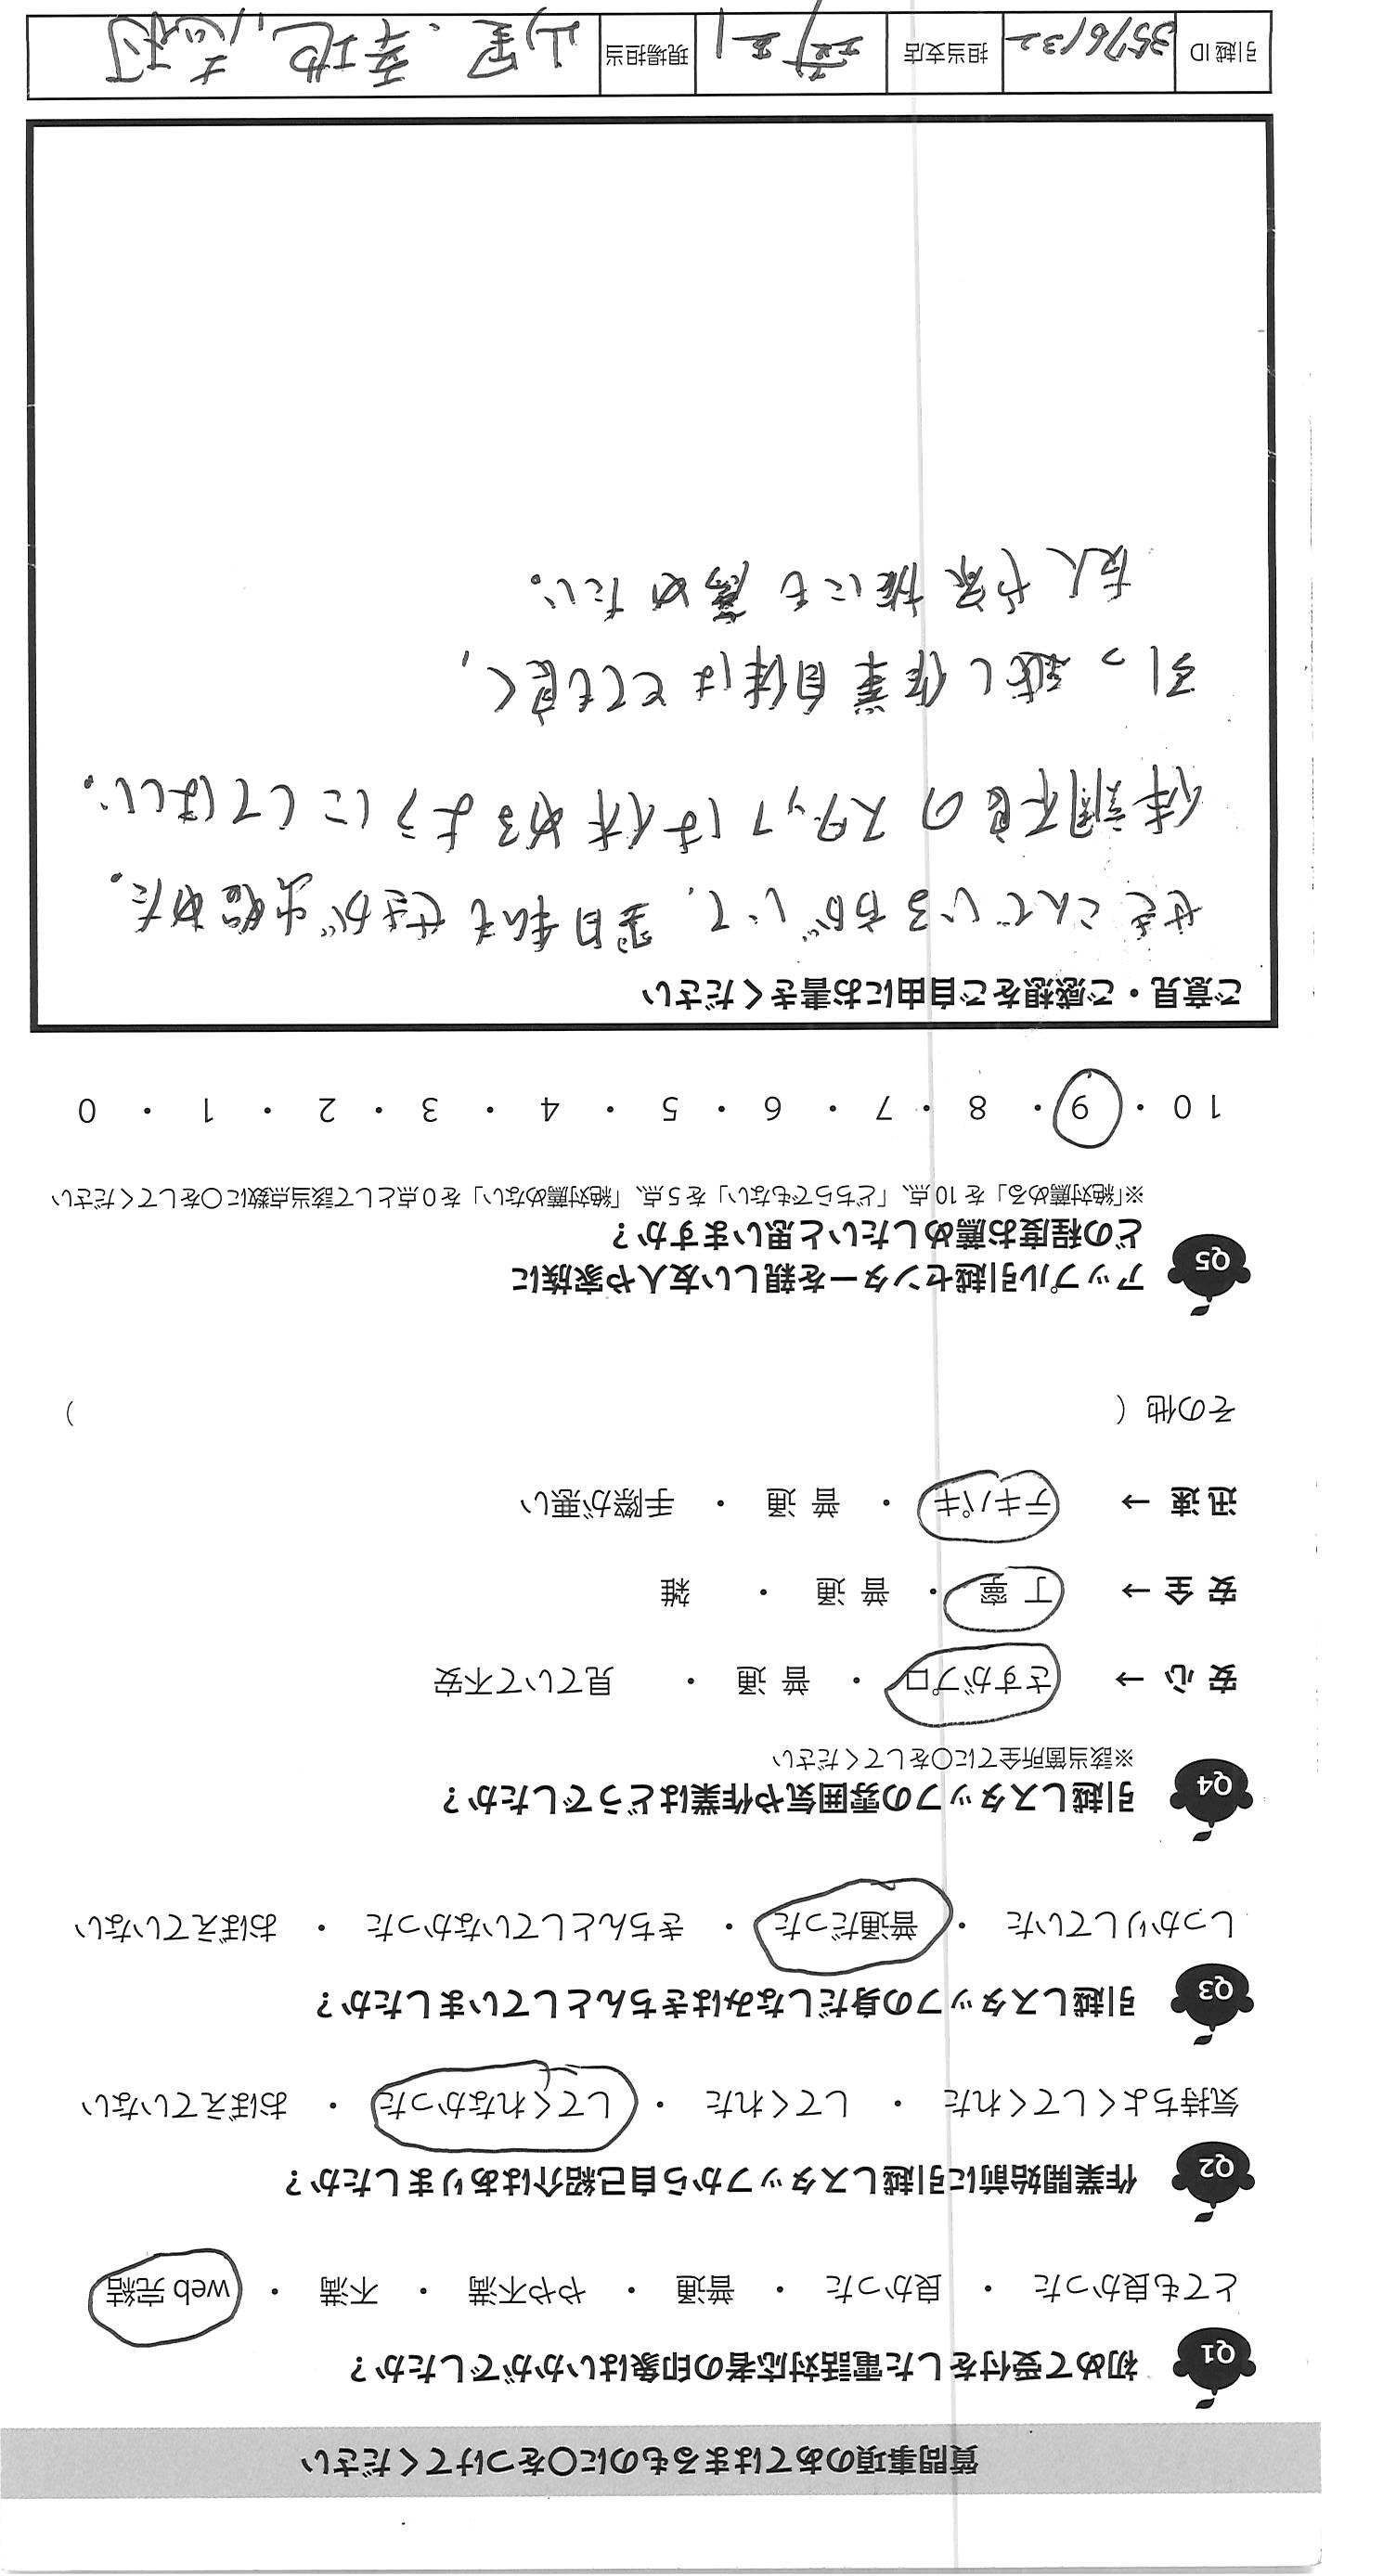 質問事項のあてはまるものに〇をつけてください
Q1 初めて受付をした電話対応者の印象はいかがでしたか？
とても良かった ・ 良かった ・ 普通 ・ やや不満 ・ 不満 ・ web 完結
Q2 作業開始前に引越しスタッフから自己紹介はありましたか？
気持ちよくしてくれた ・ してくれた ・ してくれなかった ・ おぼえていない
Q3 引越しスタッフの身だしなみはきちんとしていましたか？
しっかりしていた ・ 普通だった ・ きちんとしていなかった ・ おぼえていない
Q4 引越しスタッフの雰囲気や作業はどうでしたか？
※該当箇所全てに〇をしてください
安 心 → さすがプロ ・ 普 通 ・ 見ていて不安
安 全 → 丁 寧 ・ 普 通 ・ 雑
迅 速 → テキパキ ・ 普 通 ・ 手際が悪い
その他（ ）
Q5 アップル引越センターを親しい友人や家族に
どの程度お薦めしたいと思いますか？
※「絶対薦める」を 10 点、「どちらでもない」を５点、「絶対薦めない」を０点として該当点数に〇をしてください
10 ・ 9 ・ 8 ・ 7 ・ 6 ・ 5 ・ 4 ・ 3 ・ 2 ・ 1 ・ 0
ご意見・ご感想をご自由にお書きください
せきこんでいる方がいて、翌日私もせきが出始めた。
体調不良のスタッフは休めるようにしてほしい。
引っ越し作業自体はとても良く、
友人や家族にも薦めたい。
引越 ID 3576132 担当支店 現場担当